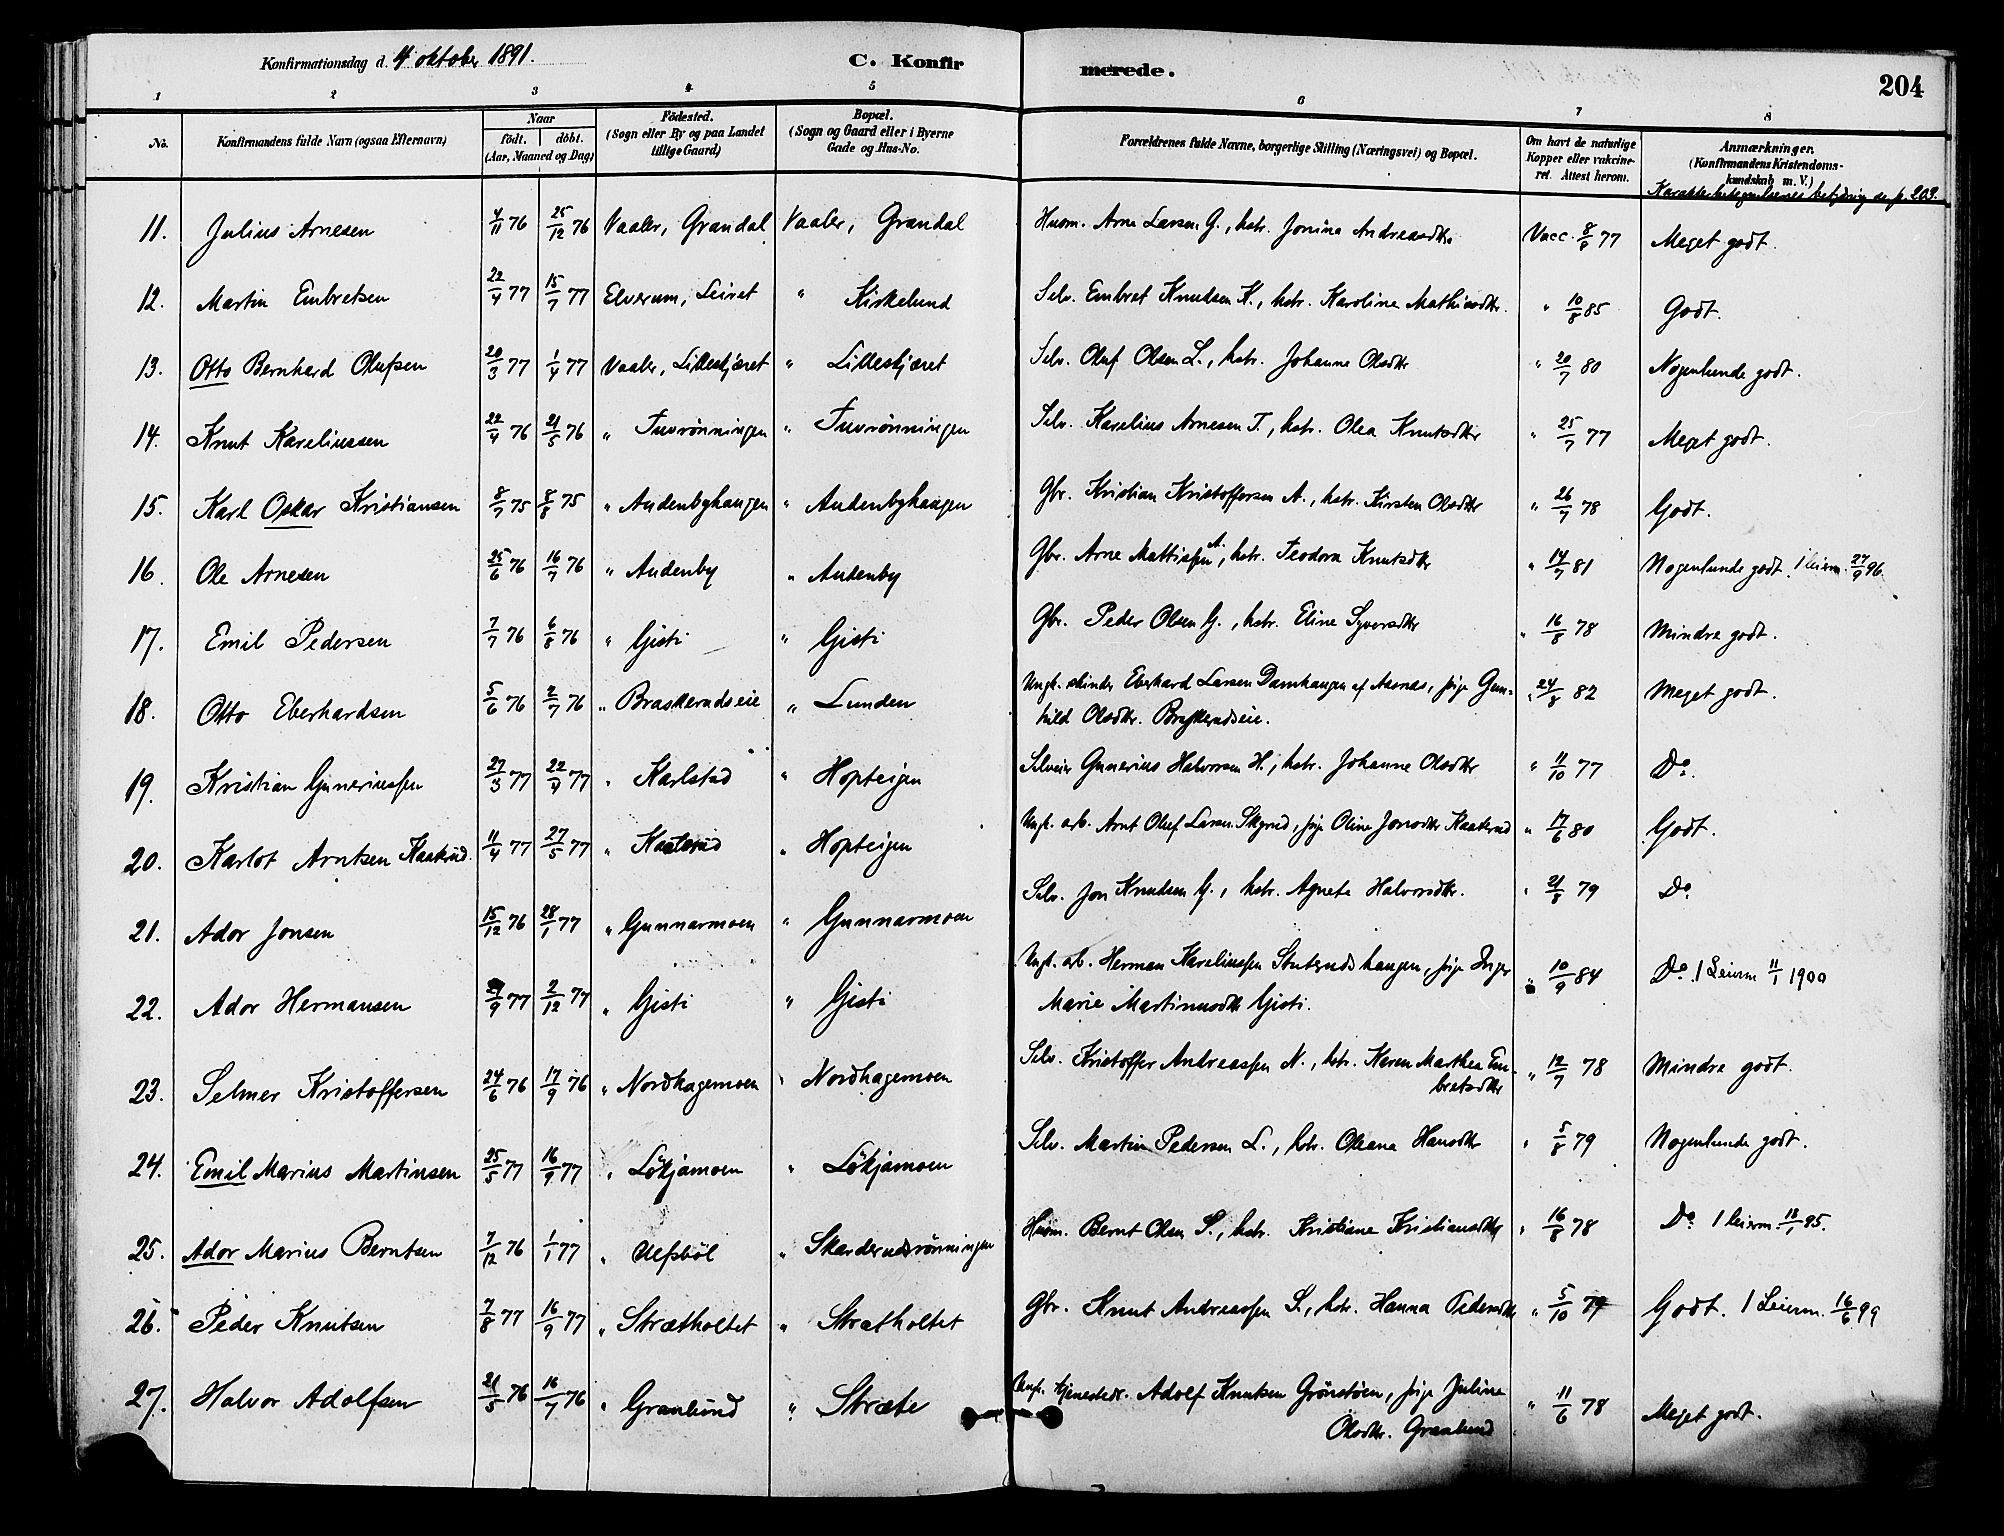 Konfirmationsdag d. 4 oktober 1891. C. Konfirmerede. 204
1 2 3 4 5 6 7 8
No. Konfirmandens fulde Navn (ogsaa Efternavn) Naar født. døbt. (Aar, Maaned og Dag) Fødested. (Sogn eller By og paa Landet tillige Gaard) Bopæl. (Sogn og Gaard eller i Byerne Gade og Hus-No. Forældrenes fulde Navne, borgerlige Stilling (Næringsvei) og Bopæl. Om havt de naturlige Kopper eller vakcineret. Attest herom. Anmærkninger. (Konfirmandens Kristendomskundskab m. V.)
se p. 203.
11. Julius Arnesen 4/11 76 25/12 76 Vaaler, Grandal Vaaler, Grandal Husm. Arne Larsen G., hstr. Jonina Andreasdtr Vacc. 8/8 77 Meget godt.
12. Martin Embretsen 22/4 77 15/7 77 Elverum, Leiret " Kirkelund Selv. Embret Knudsen K., hstr. Karoline Mathiasdtr. " 10/8 85 Godt.
13. Otto Bernhard Olufsen 20/3 77 1/4 77 Vaaler, Lilleskjæret " Lilleskjæret Selv. Oluf Olsen L., hstr. Johanne Olsdtr " 20/7 80 Nogenlunde godt.
14. Knut Kareliussen 22/4 76 21/5 76 " Tuvrønningen " Tuvrønningen Selv. Karelius Arnesen T., hstr. Olea Knutsdtr " 25/7 77 Meget godt.
15. Karl Oskar Kristiansen 8/7 75 8/8 75 " Audenbyhaugen " Audenbyhaugen Gbr. Kristian Kristoffersen A., hstr. Kirsten Olsdtr " 26/7 78 Godt.
16. Ole Arnesen 25/6 76 16/7 76 " Audenby " Audenby Gbr. Arne Mattissen A., hstr. Teodora Knutsdtr " 14/7 81 Nogenlunde godt. 1 leierm. 27/9 96.
17. Emil Pedersen 7/7 76 6/8 76 " Gjsti " Gjsti Gbr. Peder Olsen G., hstr. Eline Syversdtr " 16/8 78 Mindre godt.
18. Otto Eberhardsen 5/6 76 2/7 76 " Braskerudseie " Lunden Ungk. Eberhard Larsen Damhaugen af Aasnes, pige Gunhild Olsdtr. Braskerudseie. " 24/8 82 Meget godt.
19. Kristian Gunneriussen 27/3 77 22/4 77 " Karlstad " Hopteigen Selveier Gunerius Halvorsen H., hstr. Johanne Olsdtr " 11/10 77 Do.
20. Karlot Arntsen Kaaterud. 11/4 77 27/5 77 " Kaaterud " Hopteigen Ungk. arb. Arnt Oluf Larsen Skyrud, pige Oline Jonsdtr Kaaterud " 17/6 80 Godt.
21. Ador Jonsen 15/12 76 28/1 77 " Gunnarmoen " Gunnarmoen Selv. Jon Knudsen G., hstr. Agneta Halvorsdtr. " 21/8 79 Do
22. Ador Hermansen 29/9 77 2/12 77 " Gjsti " Gjsti Ungk. arb. Herman Kareliussen Stuterudshaugen, pige Inger Marie Martinusdtr Gjsti. " 10/9 84 Do. 1 Leierm 11/1 1900
23. Selmer Kristoffersen 24/6 76 17/9 76 " Nordhagemoen " Nordhagemoen Selv. Kristoffer Andreassen N., hstr. Karen Marthea Embretsdtr " 12/7 78 Mindre godt.
24. Emil Marius Martinsen 25/5 77 16/9 77 " Løkjamoen " Løkjamoen Selv. Martin Pedersen L., hstr. Oleana Hansdtr " 5/8 79 Nogenlunde godt.
25. Ador Marius Berntsen 7/12 76 1/1 77 " Ulfsbøl " Skarderudsrønningen Husm. Bernt Olsen S., hstr. Kristiane Kristiansdtr " 16/8 78 Do 1 leierm. 18/1 95.
26. Peder Knutsen 7/8 77 16/9 77 " Strætholtet " Strætholtet Gbr. Knut Andreassen S., hstr. Hanna Pedersdtr " 5/10 79 Godt. 1 Leierm. 16/6 99
27. Halvor Adolfsen 21/5 76 16/7 76 " Granlund " Stræte Ungk. tjenestedr. Adolf Knutsen Grønstøen, pige Juline Olsdtr. Granlund " 11/6 78 Meget godt.